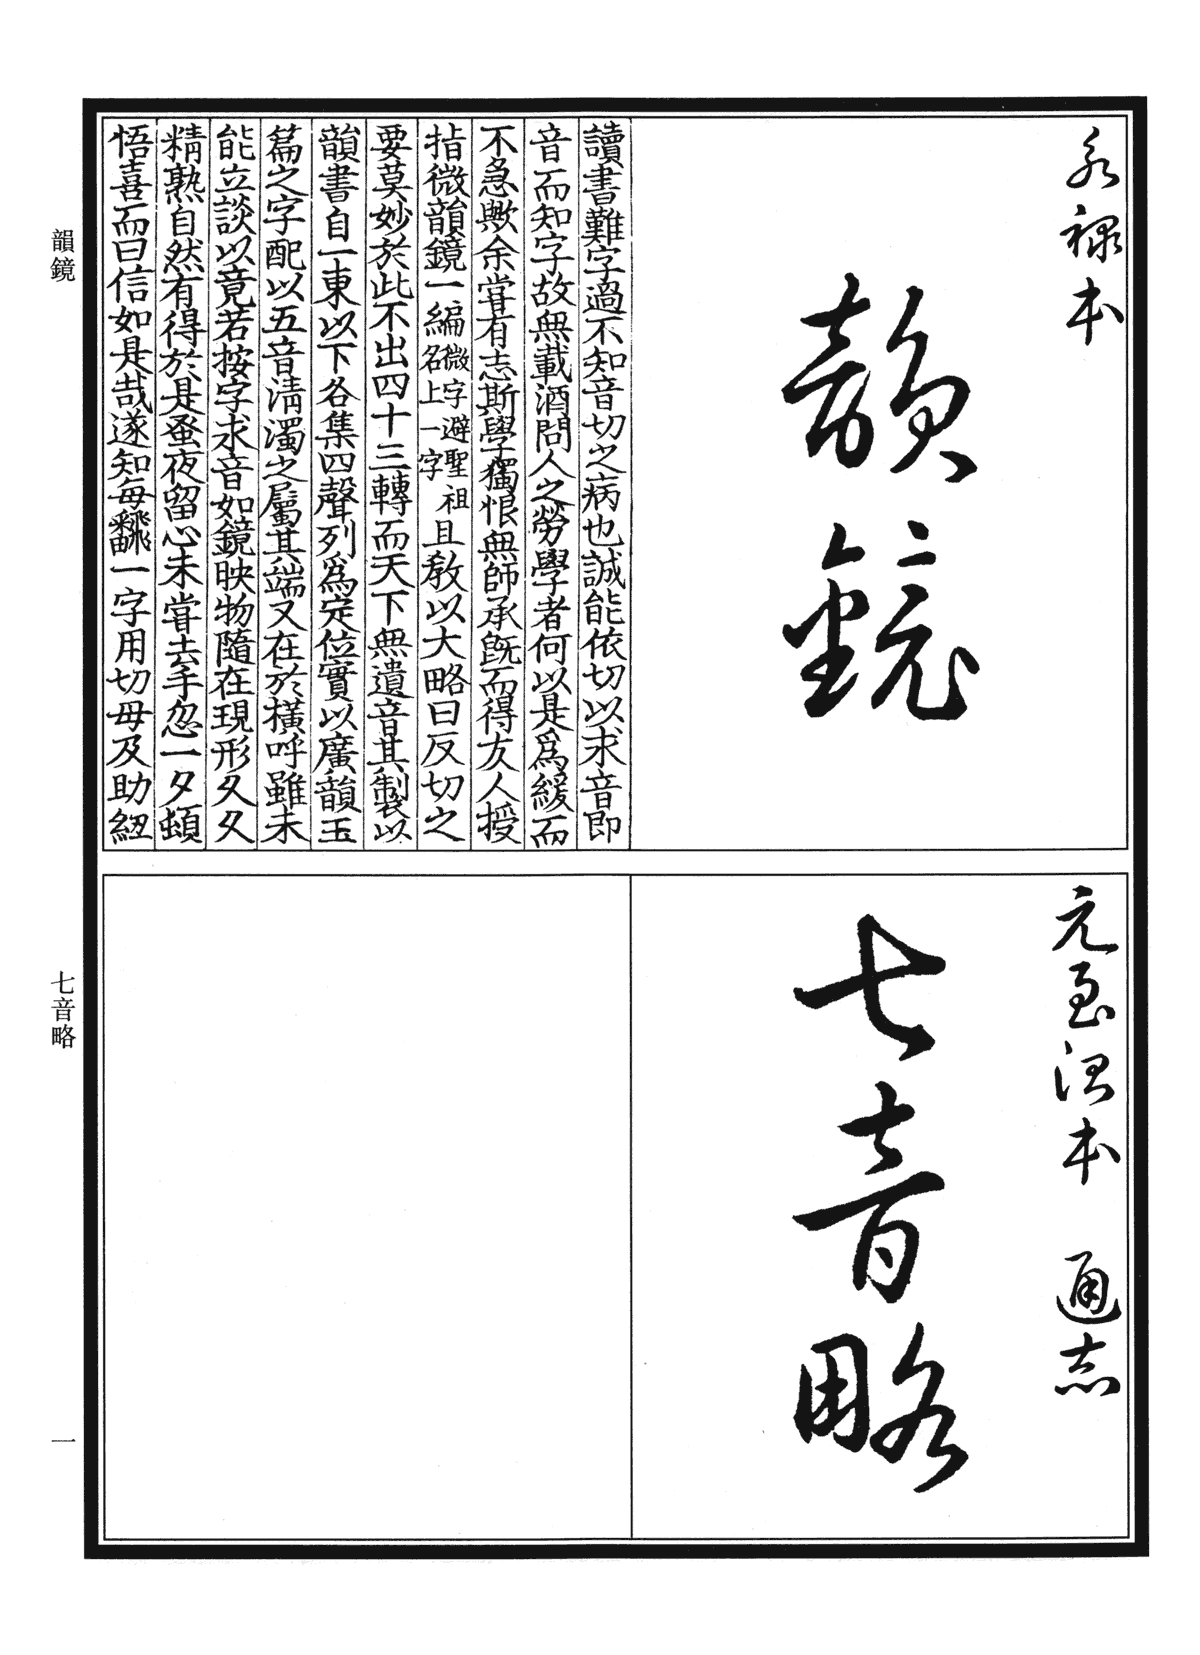 永祿本
韻鏡
讀書難字過不知音切之病也誠能依切以求音即
音而知字故無載酒問人之勞學者何以是爲緩而
不急歟余嘗有志斯學獨恨無師承旣而得友人授
指微韻鏡一編微字避聖祖名上一字且敎以大略曰反切之
要莫妙於此不出四十三轉而天下無遺音其製以
韻書自一東以下各集四聲列爲定位實以廣韻玉
篇之字配以五音淸濁之屬其端又在於橫呼雖未
能立談以竟若按字求音如鏡映物隨在現形久久
精熟自然有得於是蚤夜留心未嘗去手忽一夕頓
悟喜而曰信如是哉遂知每翻一字用切母及助紐
元至治本 通志
七音略
韻鏡
七音略
一